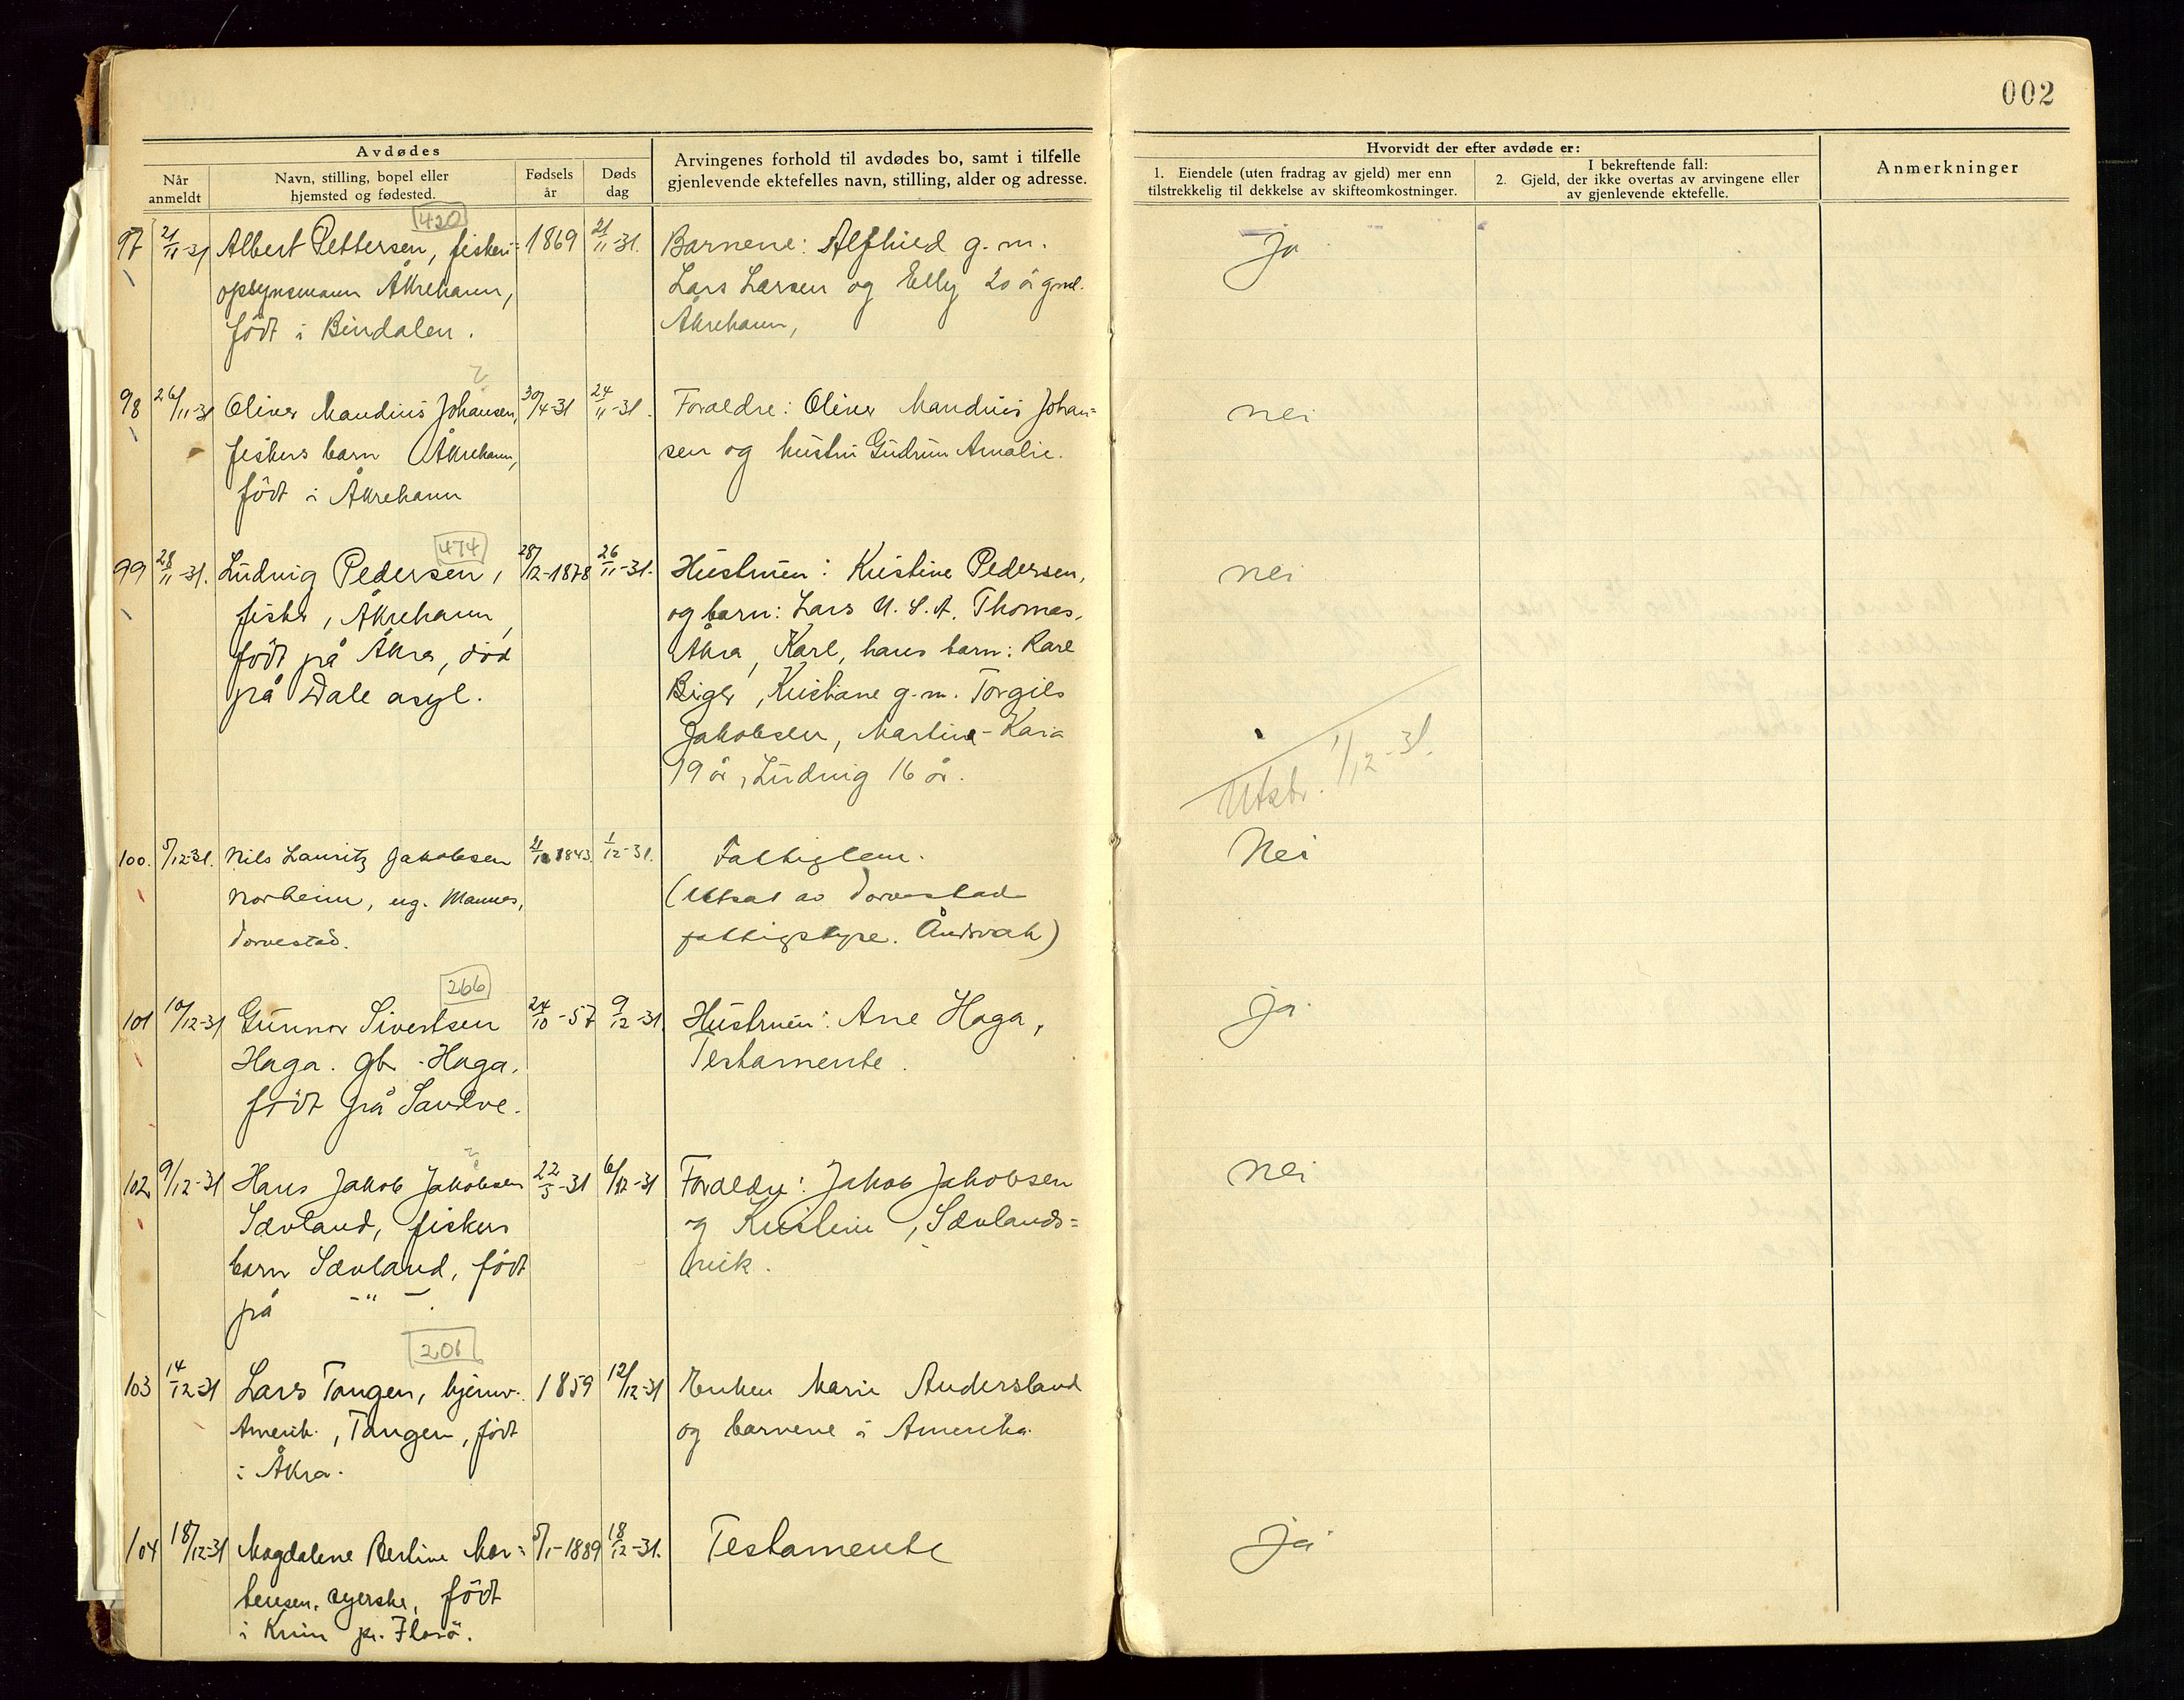 002
Avdødes
Når anmeldt
Navn, stilling, bopel eller hjemsted og fødested.
Fødsels år
Døds dag
Arvingenes forhold til avdødes bo, samt i tilfelle
gjenlevende ektefelles navn, stilling, alder og adresse.
Hvorvidt der efter avdøde er:
1. Eiendele (uten fradrag av gjeld) mer enn
tilstrekkelig til dekkelse av skifteomkostninger.
I bekreftende fall:
2. Gjeld, der ikke overtas av arvingene eller
av gjenlevende ektefelle.
Anmerkninger
420
97 21/11-31 Albert Pettersen, fiskeri= 1869 21/11-31. Barnene: Alfhild g.m. ja
opsynsmann Åkrehamn, Lars Larsen og Elly 20 år gml.
født i Bindalen. Åkrehamn,
?
98 26/11-31 Oliver Mandius Johansen, 30/4-31 24/11-31. Foreldre: Oliver Mandius Johan= nei
fiskers barn Åkrehamn, sen og hustru Gudrun Amalie.
født i Åkrehamn
474
99 28/11-31. Ludvig Pedersen, 28/12-1878 26/11-31. Hustruen: Kristine Pedersen, nei
fisker, Åkrehamn, og barn: Lars U.S.A. Thomas,
født på Åkra, død Åkra, Karl, hans barn: Karl
på Dale asyl. Birger, Kristiane g.m. Torgils
Jakobsen, Martine-Kaia
19 år, Ludvig 16 år.
Utstr. 1/12-31.
100. 5/12-31. Nils Lauritz Jakobsen 1843. 1/12-31. Fattiglem. Nei
Norheim, ug. Mannes, (Utsat av Torvestad
Torvestad. fattigstyre.
266
101 10/12-31 Gunnar Sivertsen 24/10-57 9/12-31. Hustruen: Ane Haga, ja
Haga. gb. Haga. Testamente.
født på Sandve.
?
102. 9/12-31 Hans Jakob Jakobsen 22/5-31 6/12-31 Foreldre: Jakob Jakobsen nei
Sævland, fiskers og Kristine, Sævlands=
barn Sævland, født vik.
på -"-.
201
103 14/12-31 Lars Tangen, hjemv. 1859 12/12-31 Enken Marie Andersland
Amerik., Tangen, født og barnene i Amerika.
i Åkra.
104 18/12-31 Magdalene Bertine Mor= 5/1-1889 18/12-31. Testamente ja
tensen. syerske, født
i pr. Florö.